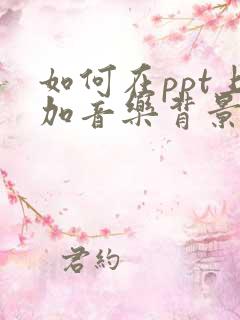 如何在ppt上
加音樂背景
君約